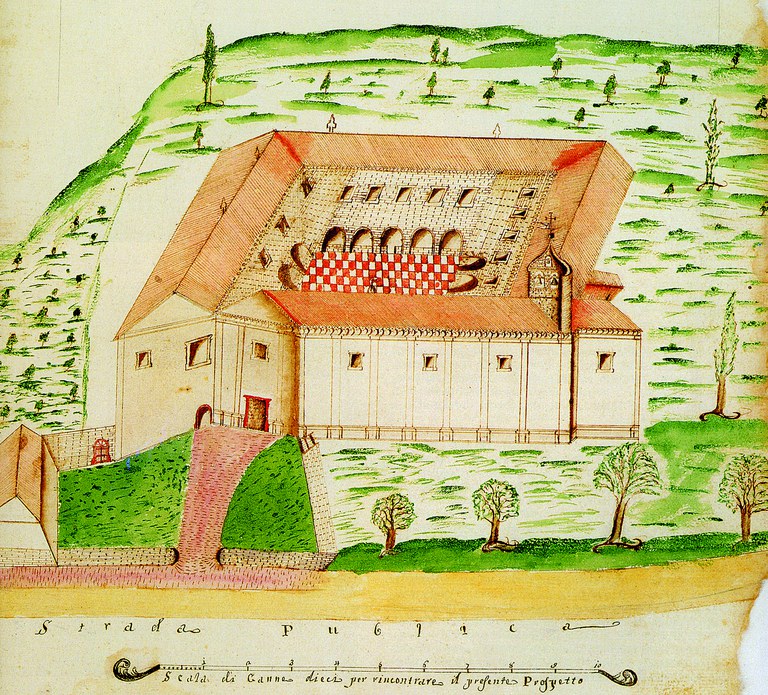 Strada Publica
1 2 3 4 5 6 7 8 9 10
Scala di Canne dieci per rincontrare il presente Prospetto